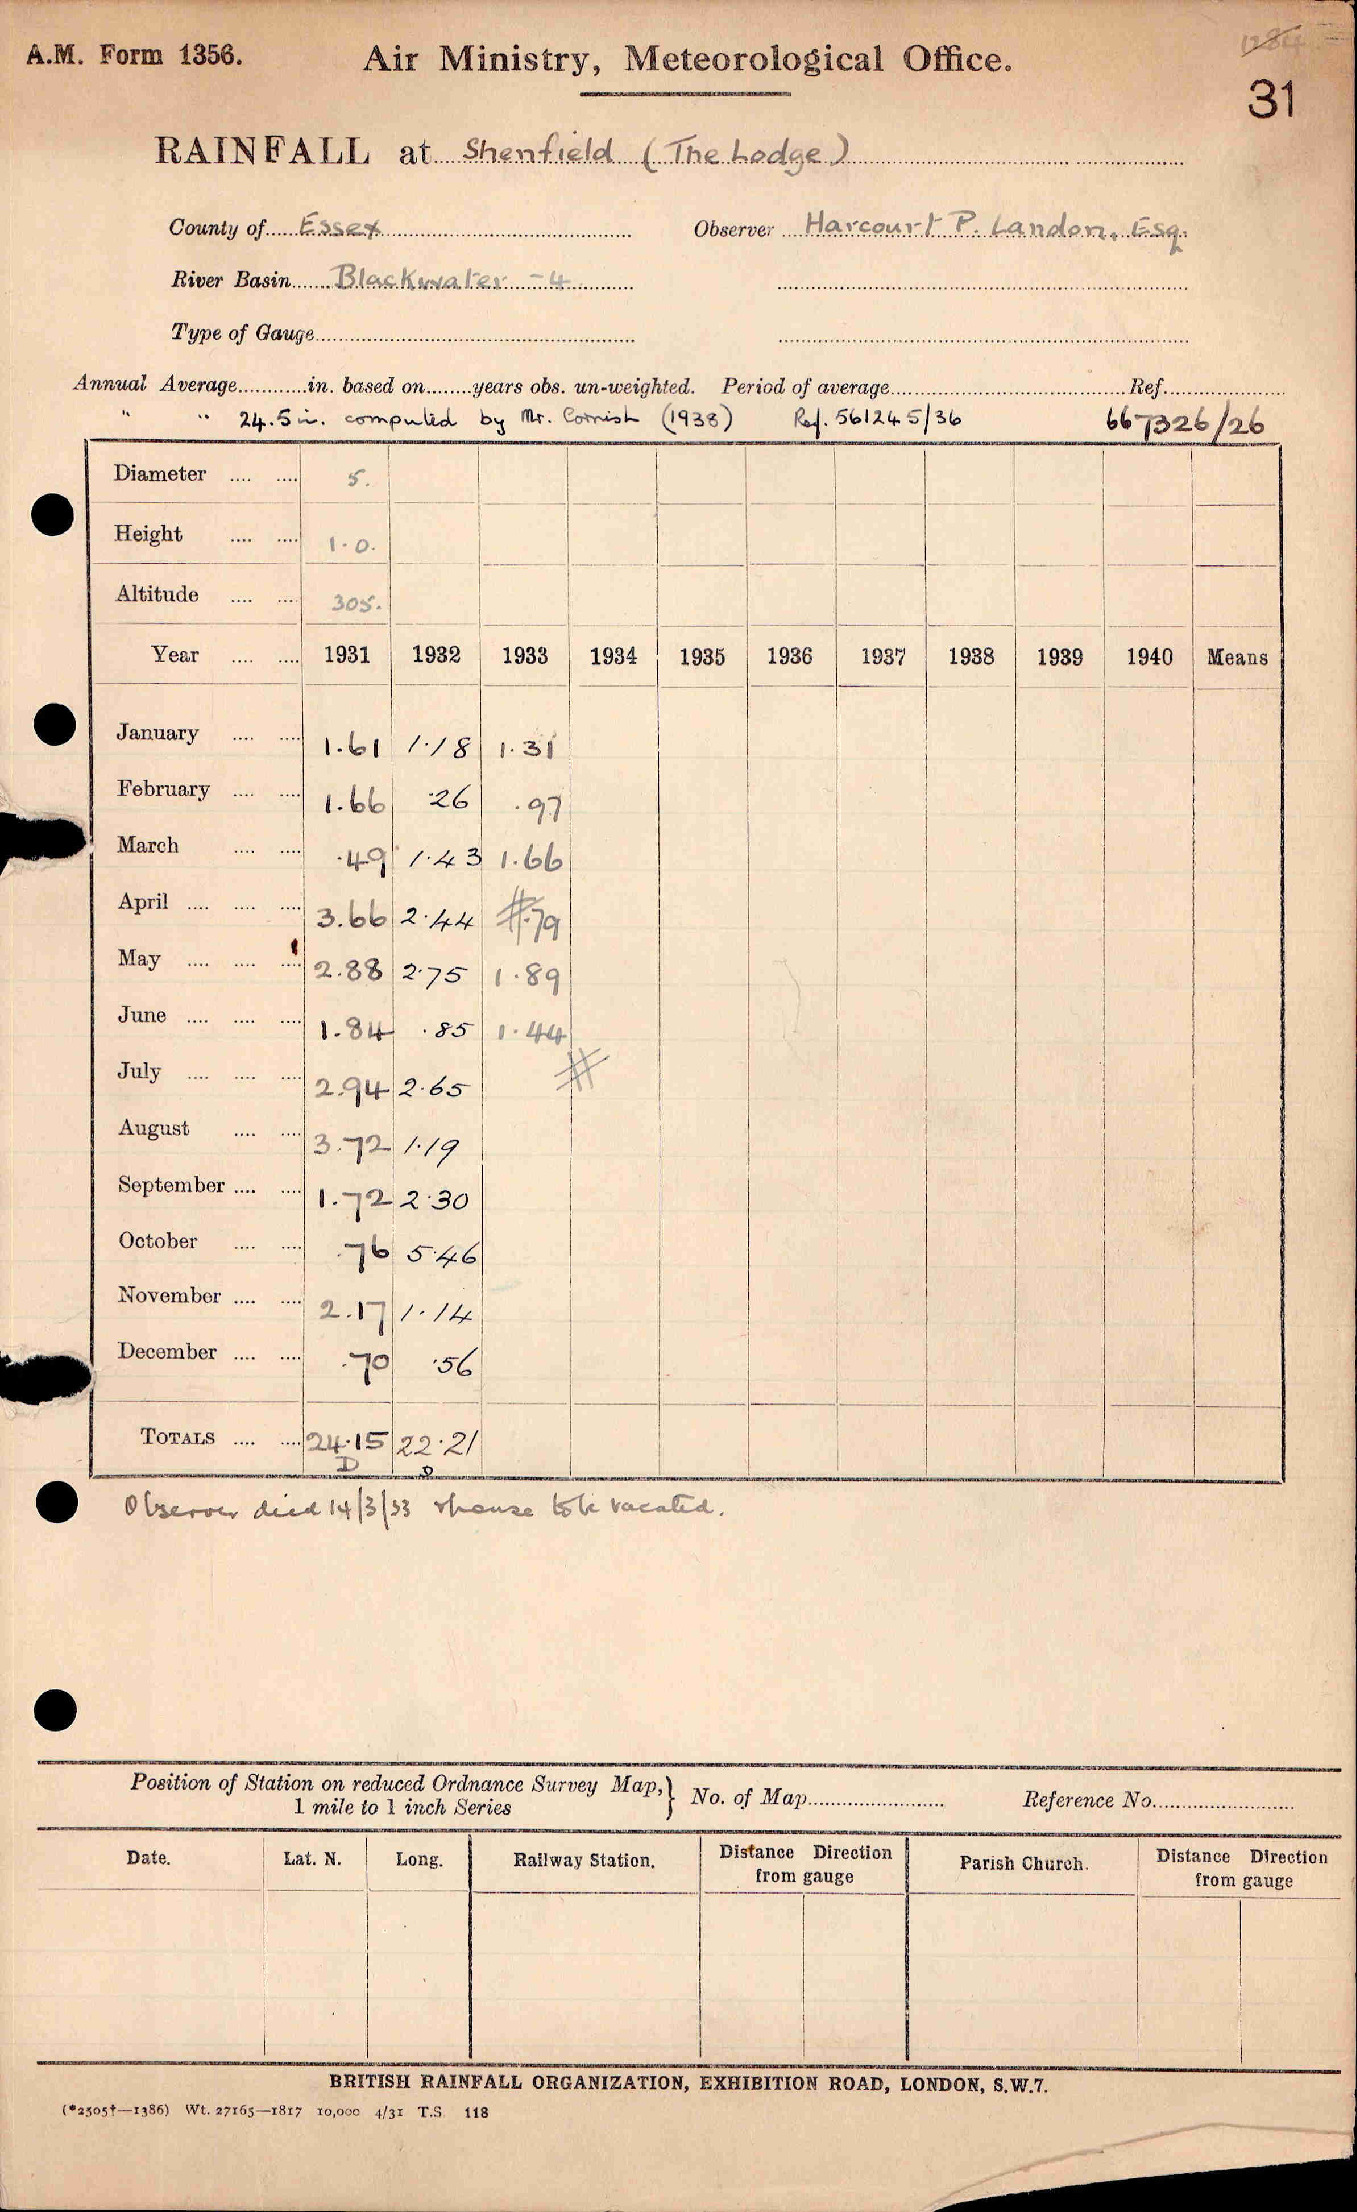 A.M. Form 1356. Air Ministry, Meteorological Office. 1284
31
RAINFALL at Shenfield (The Lodge)
County of Essex Observer Harcourt P. Landon, Esq.
River Basin Blackwater -4
Type of Gauge
Annual Average in. based on years obs. un-weighted. Period of average Ref.
" " 24.5 in. computed by Mr. Cornish (1938) Ref. 561245/36 667326/26
Diameter .... .... 5.
Height .... .... 1.0.
Altitude .... .... 305.
Year .... .... 1931 1932 1933 1934 1935 1936 1937 1938 1939 1940 Means
January .... .... 1.61 1.18 1.31
February .... .... 1.66 .26 .97
March .... .... .49 1.43 1.66
April .... .... .... 3.66 2.44 # .79
May .... .... .... 2.88 2.75 1.89
June .... .... .... 1.84 .85 1.44
July .... .... .... 2.94 2.65 #
August .... .... 3.72 1.19
September .... .... 1.72 2.30
October .... .... .76 5.46
November .... .... 2.17 1.14
December .... .... .70 .56
TOTALS .... .... 24.15 22.21
D D
Observer died 14/3/33 & house to be vacated.
Position of Station on reduced Ordnance Survey Map,} No. of Map Reference No.
1 mile to 1 inch Series
Date. Lat. N. Long. Railway Station. Distance Direction from gauge Parish Church. Distance Direction from gauge
BRITISH RAINFALL ORGANIZATION, EXHIBITION ROAD, LONDON, S.W.7.
(*2505†—1386) Wt. 27165—1817 10,000 4/31 T.S. 118